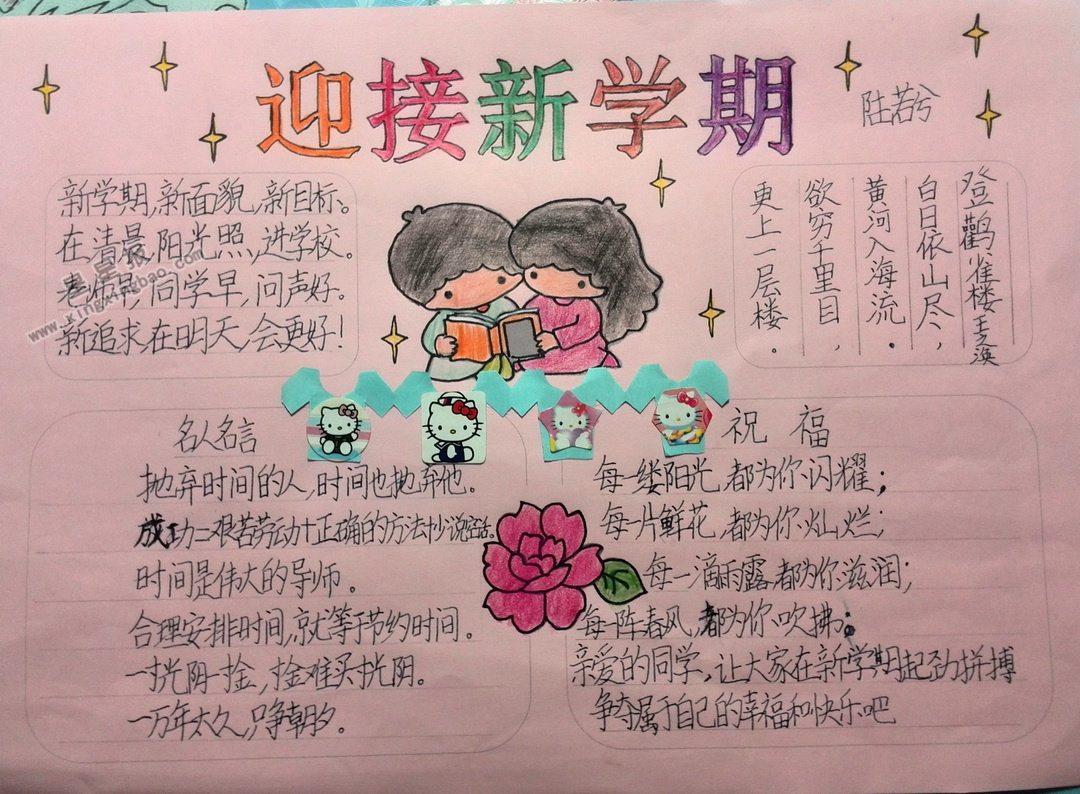 迎接新学期
陆若兮
新学期,新面貌,新目标。
在清晨,阳光照,进学校。
老师早,同学早,问声好。
新追求,在明天,会更好!
登鹳雀楼 王之涣
白日依山尽,
黄河入海流。
欲穷千里目,
更上一层楼。
名人名言
抛弃时间的人,时间也抛弃他。
成功=艰苦劳动+正确的方法+少说空话。
时间是伟大的导师。
合理安排时间,就等于节约时间。
一寸光阴一寸金,寸金难买寸光阴。
一万年太久,只争朝夕。
祝福
每一缕阳光,都为你闪耀;
每一片鲜花,都为你灿烂;
每一滴雨露,都为你滋润;
每一阵春风,都为你吹拂;
亲爱的同学,让大家在新学期起劲拼搏
争夺属于自己的幸福和快乐吧